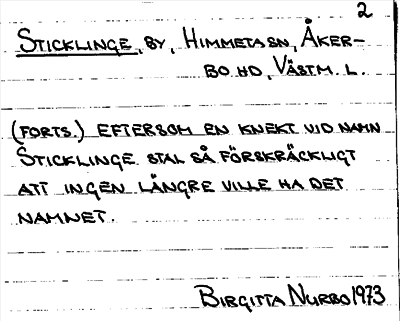 2
STICKLINGE, BY, HIMMETA SN, ÅKER-
BO HD, VÄSTM. L.
(FORTS.) EFTERSOM EN KNEKT VID NAMN
STICKLINGE STAL SÅ FÖRSKRÄCKLIGT
ATT INGEN LÄNGRE VILLE HA DET
NAMNET.
BIRGITTA NURBO 1973